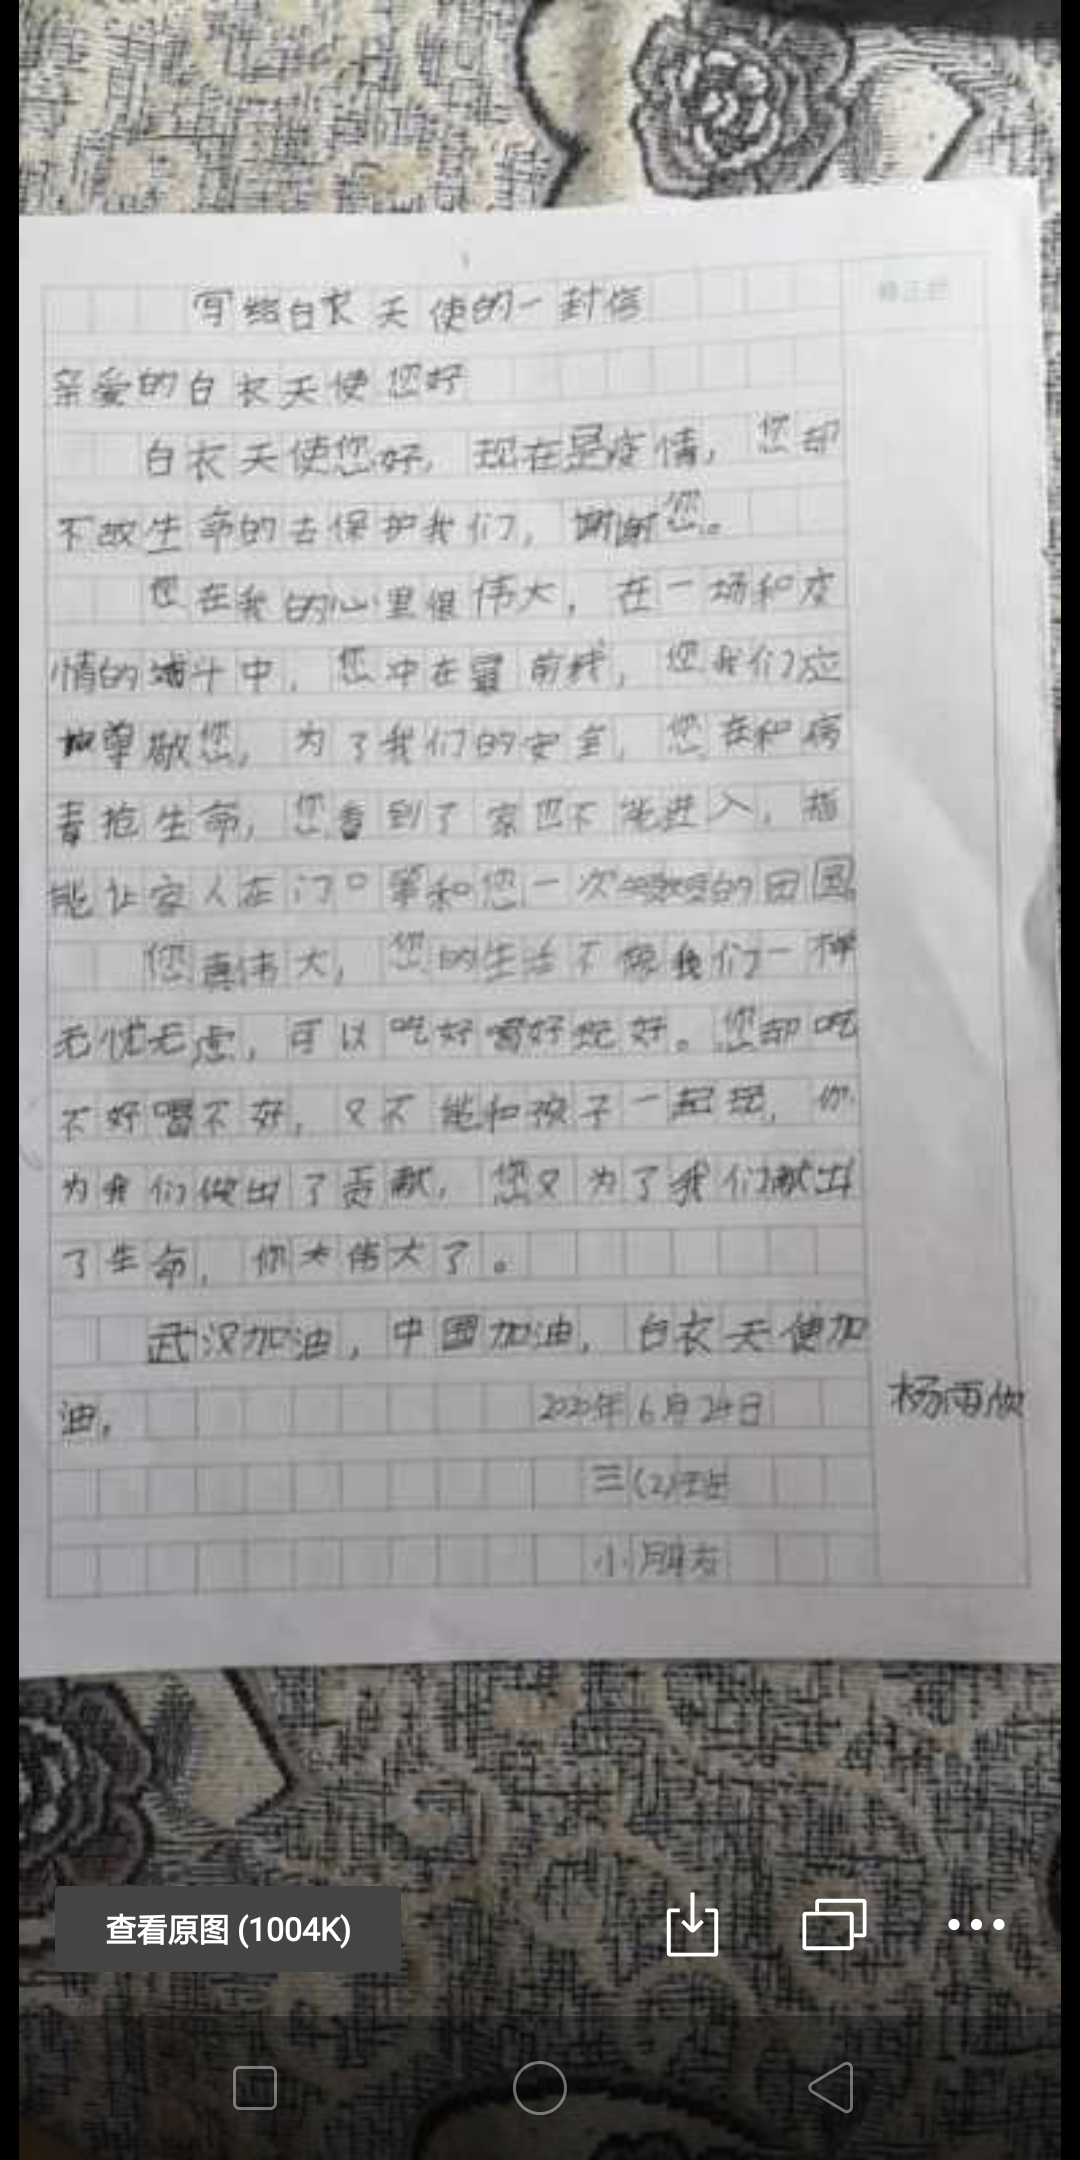 写给白衣天使的一封信
亲爱的白衣天使您好
白衣天使您好，现在是疫情，您却
不故生命的去保护我们，谢谢您。
您在我的心里很伟大，在一场和疫
情的斗中，您冲在最前线，您我们应
尊敬您，为了我们的安全，您在和病
毒抢生命，您看到了家也不能进入，指
能让家人在门口等和您一次的团圆
您真伟大，您的生活不像我们一样
无忧无虑，可以吃好喝好玩好。您却吃
不好喝不好，又不能和孩子一起玩，你
为我们做出了贡献，您又为了我们献出
了生命，你太伟大了。
武汉加油，中国加油，白衣天使加
油。
2020年6月24日
杨雨欣
三(2)班
小朋友
查看原图 (1004K)